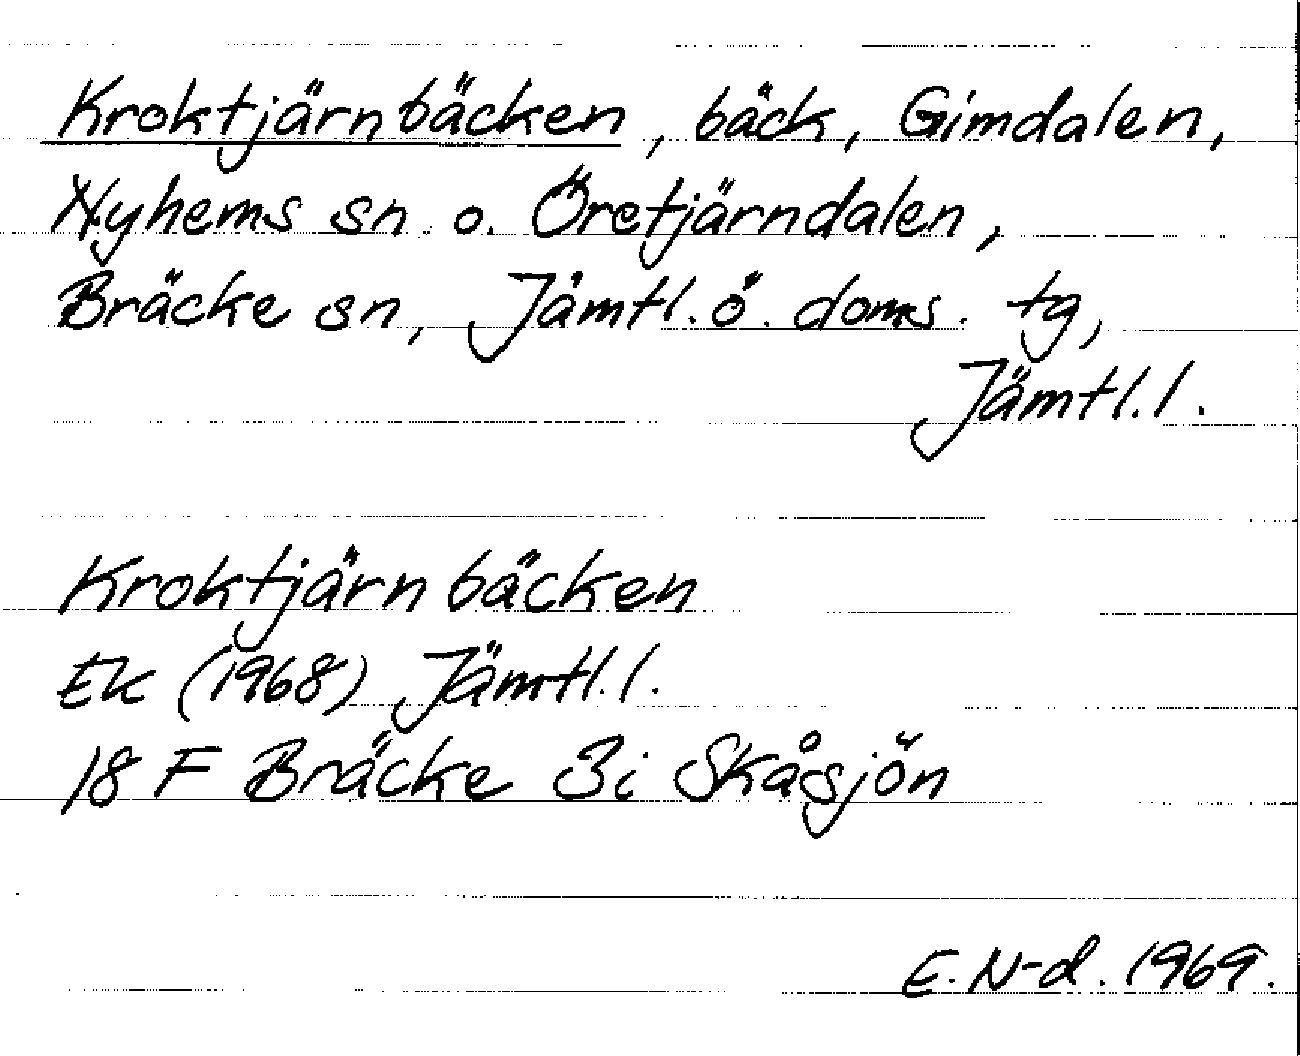 Kroktjärnbäcken, bäck, Gimdalen,
Nyhems sn. o. Öretjärndalen,
Bräcke sn, Jämtl. ö. doms. tg,
Jämtl. l.
Kroktjärnbäcken
Ek (1968) Jämtl. l.
18 F Bräcke 3i Skåsjön
E. N-d. 1969.